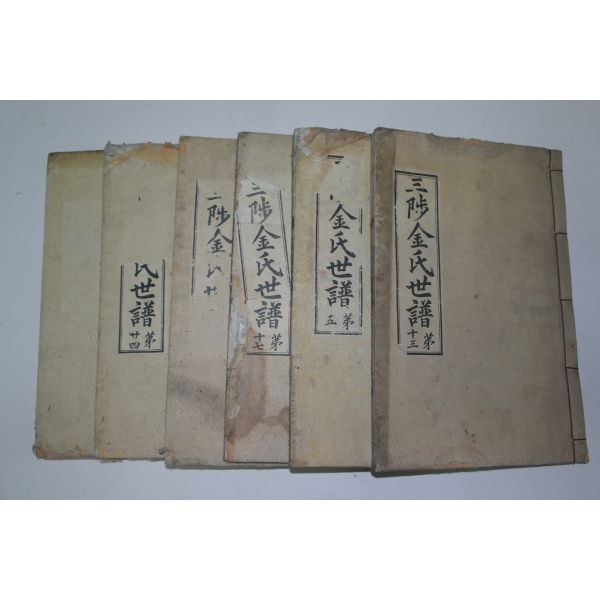 三陟金氏世譜
第十三
金氏世譜
第五
三陟金氏世譜
第十七
陟金
氏世譜
第廿四